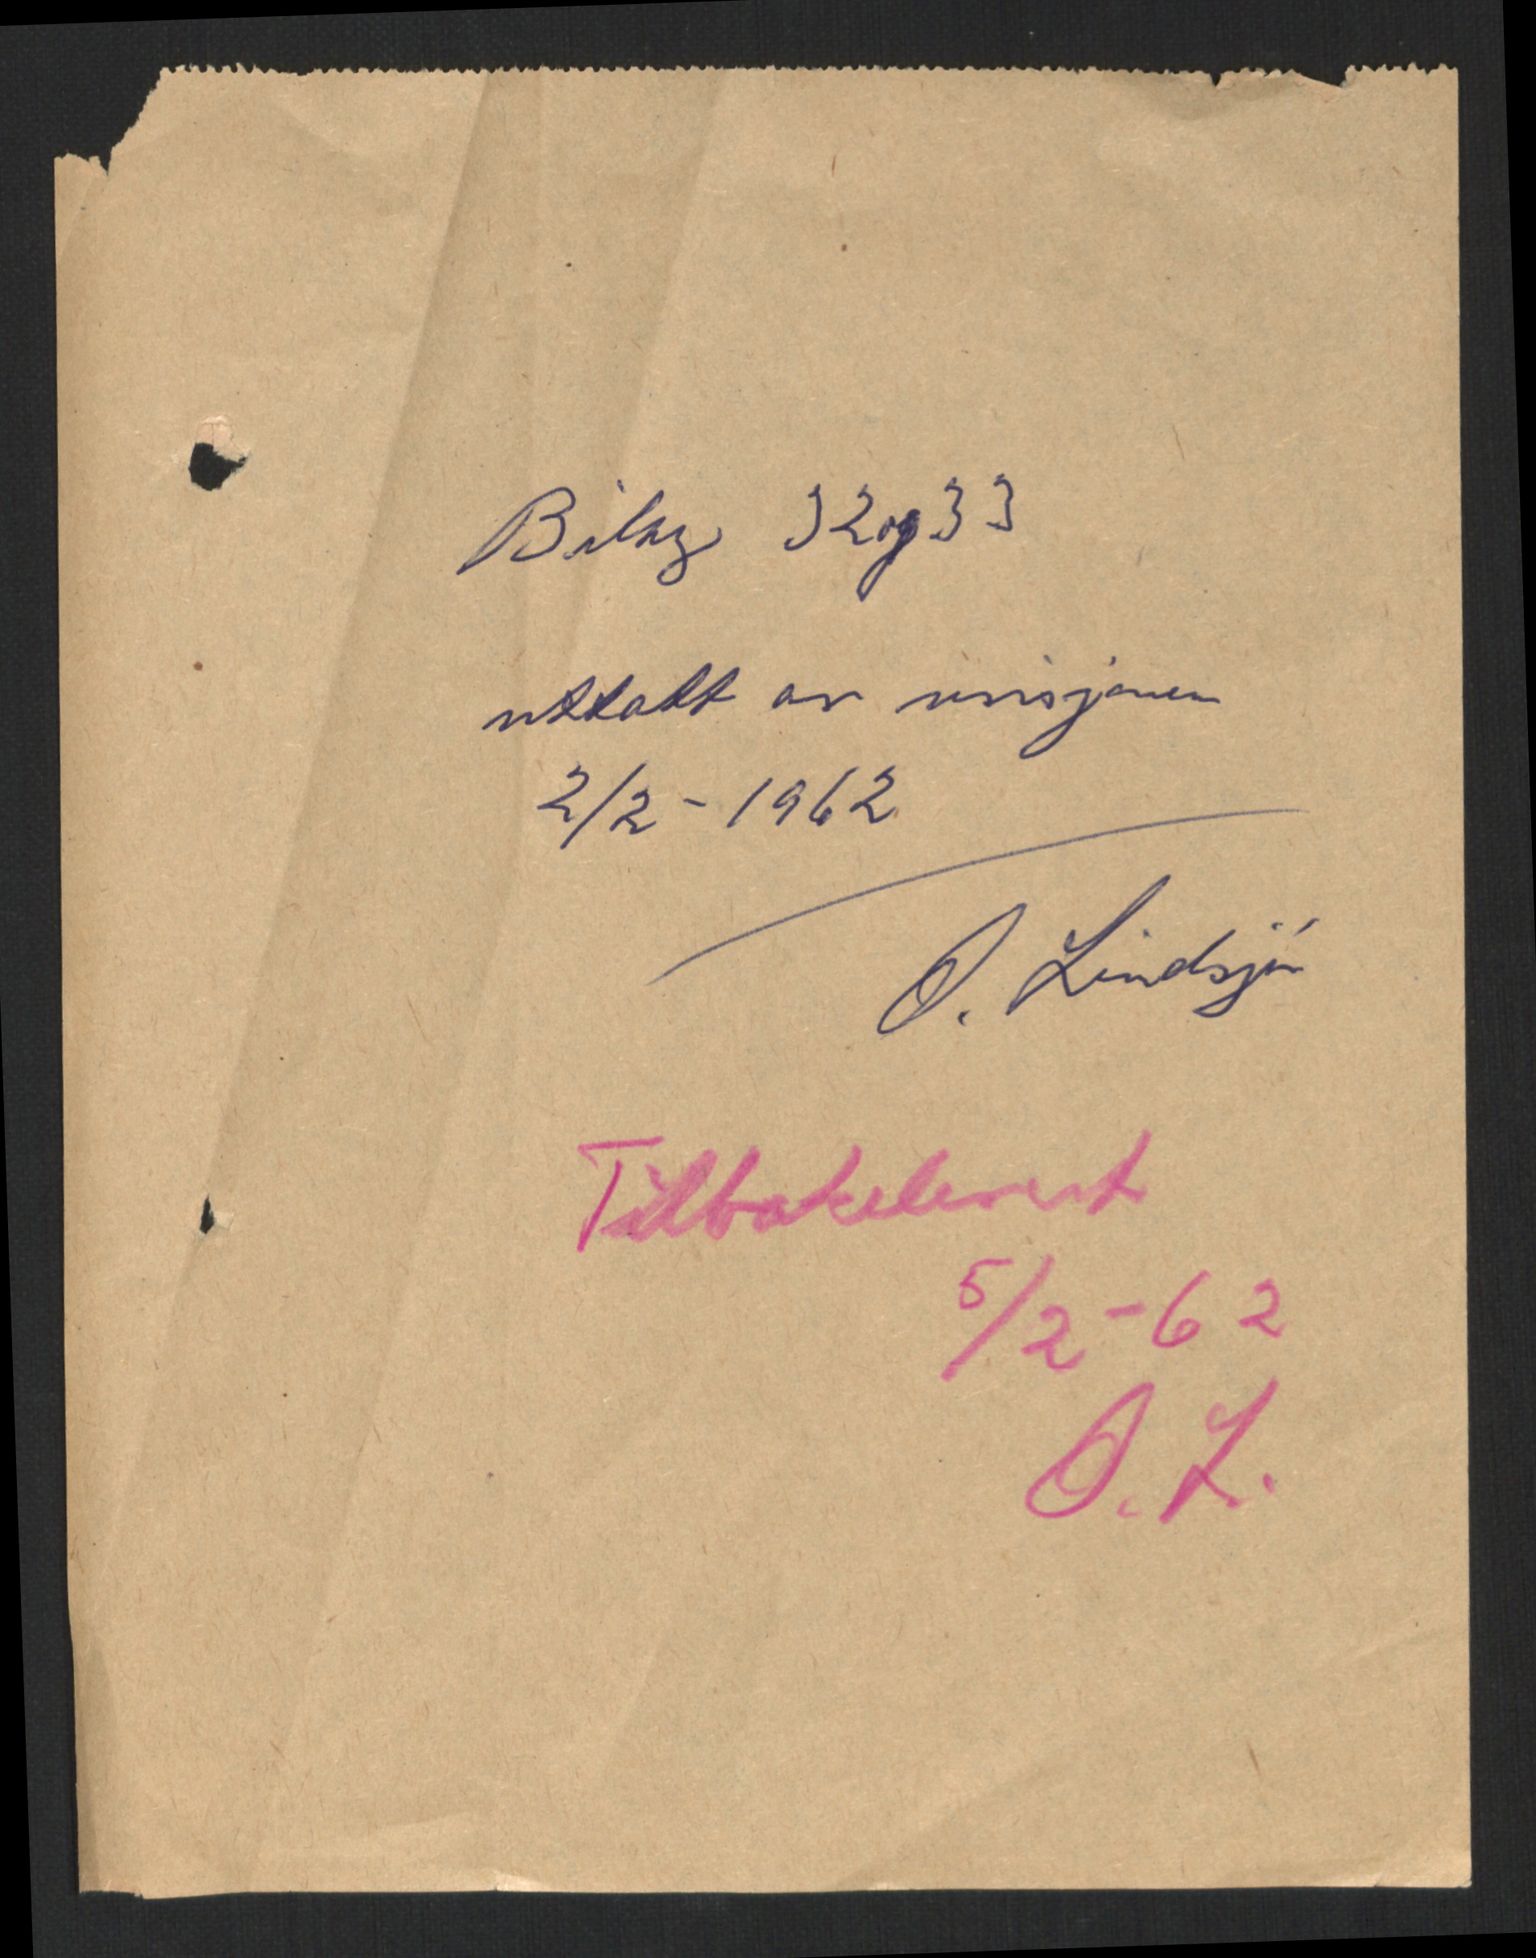 Bilag 32 og 33
uttatt av revisjonen
2/2 - 1962
O. Lindsjø
Tilbakelevert
5/2 - 62
O. L.